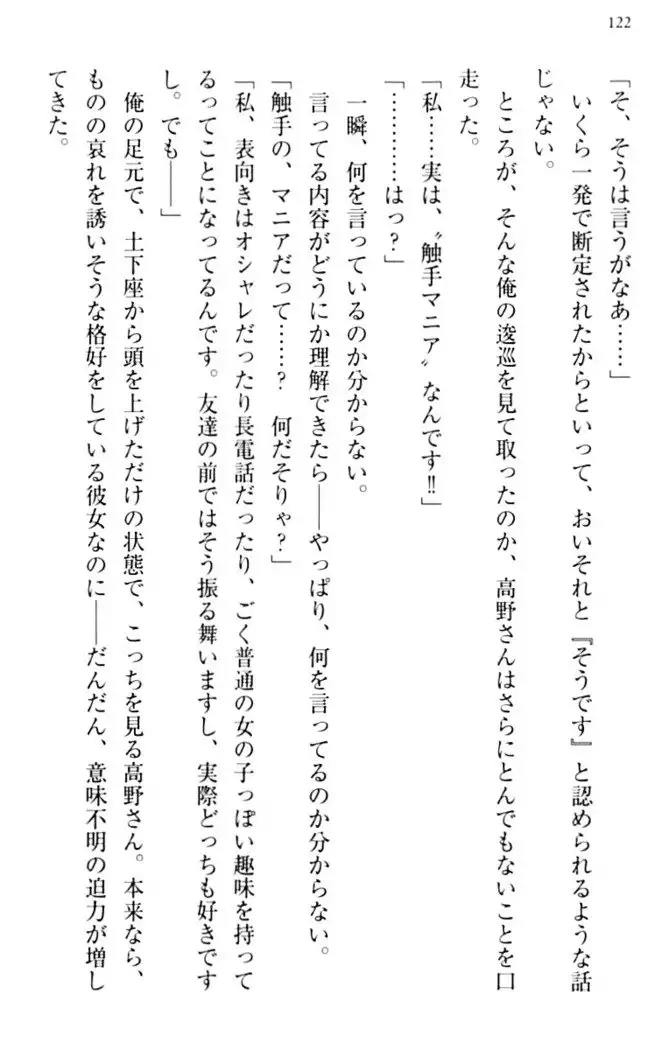 122
「そ、そうは言うがなあ……」
いくら一発で断定されたからといって、おいそれと『そうです』と認められるような話
じゃない。
ところが、そんな俺の逡巡を見て取ったのか、高野さんはさらにとんでもないことを口
走った。
「私……実は、〝触手マニア〟なんです!!」
「…………はっ？」
一瞬、何を言っているのか分からない。
言ってる内容がどうにか理解できたら――やっぱり、何を言ってるのか分からない。
「触手の、マニアだって……？　何だそりゃ？」
「私、表向きはオシャレだったり長電話だったり、ごく普通の女の子っぽい趣味を持って
るってことになってるんです。友達の前ではそう振る舞いますし、実際どっちも好きです
し。でも――」
俺の足元で、土下座から頭を上げただけの状態で、こっちを見る高野さん。本来なら、
ものの哀れを誘いそうな格好をしている彼女なのに――だんだん、意味不明の迫力が増し
てきた。